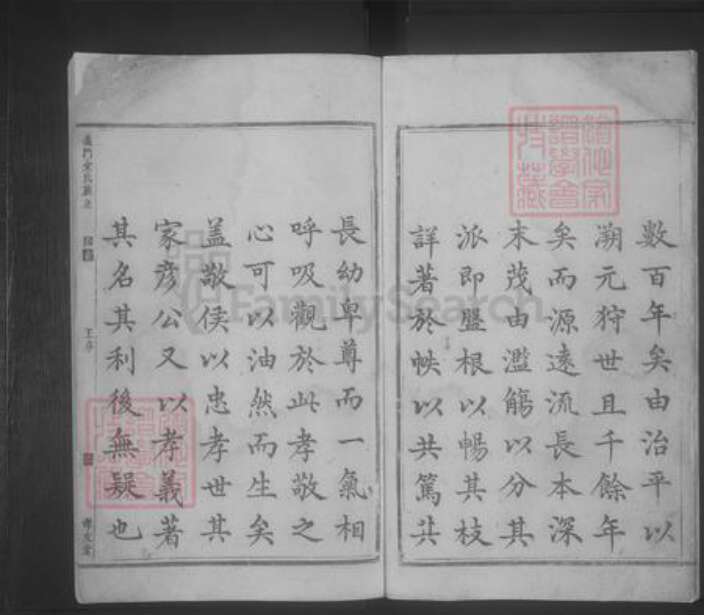 數百年矣由治平以
溯元狩世且千餘年
矣而源遠流長本深
末茂由濫觴以分其
派即盤根以暢其枝
詳著於帙以共篤其
長幼卑尊而一氣相
呼吸觀於此孝敬之
心可以油然而生矣
蓋敬侯以忠孝世其
家彥公又以孝義著
其名其利後無疑也
FamilySearch